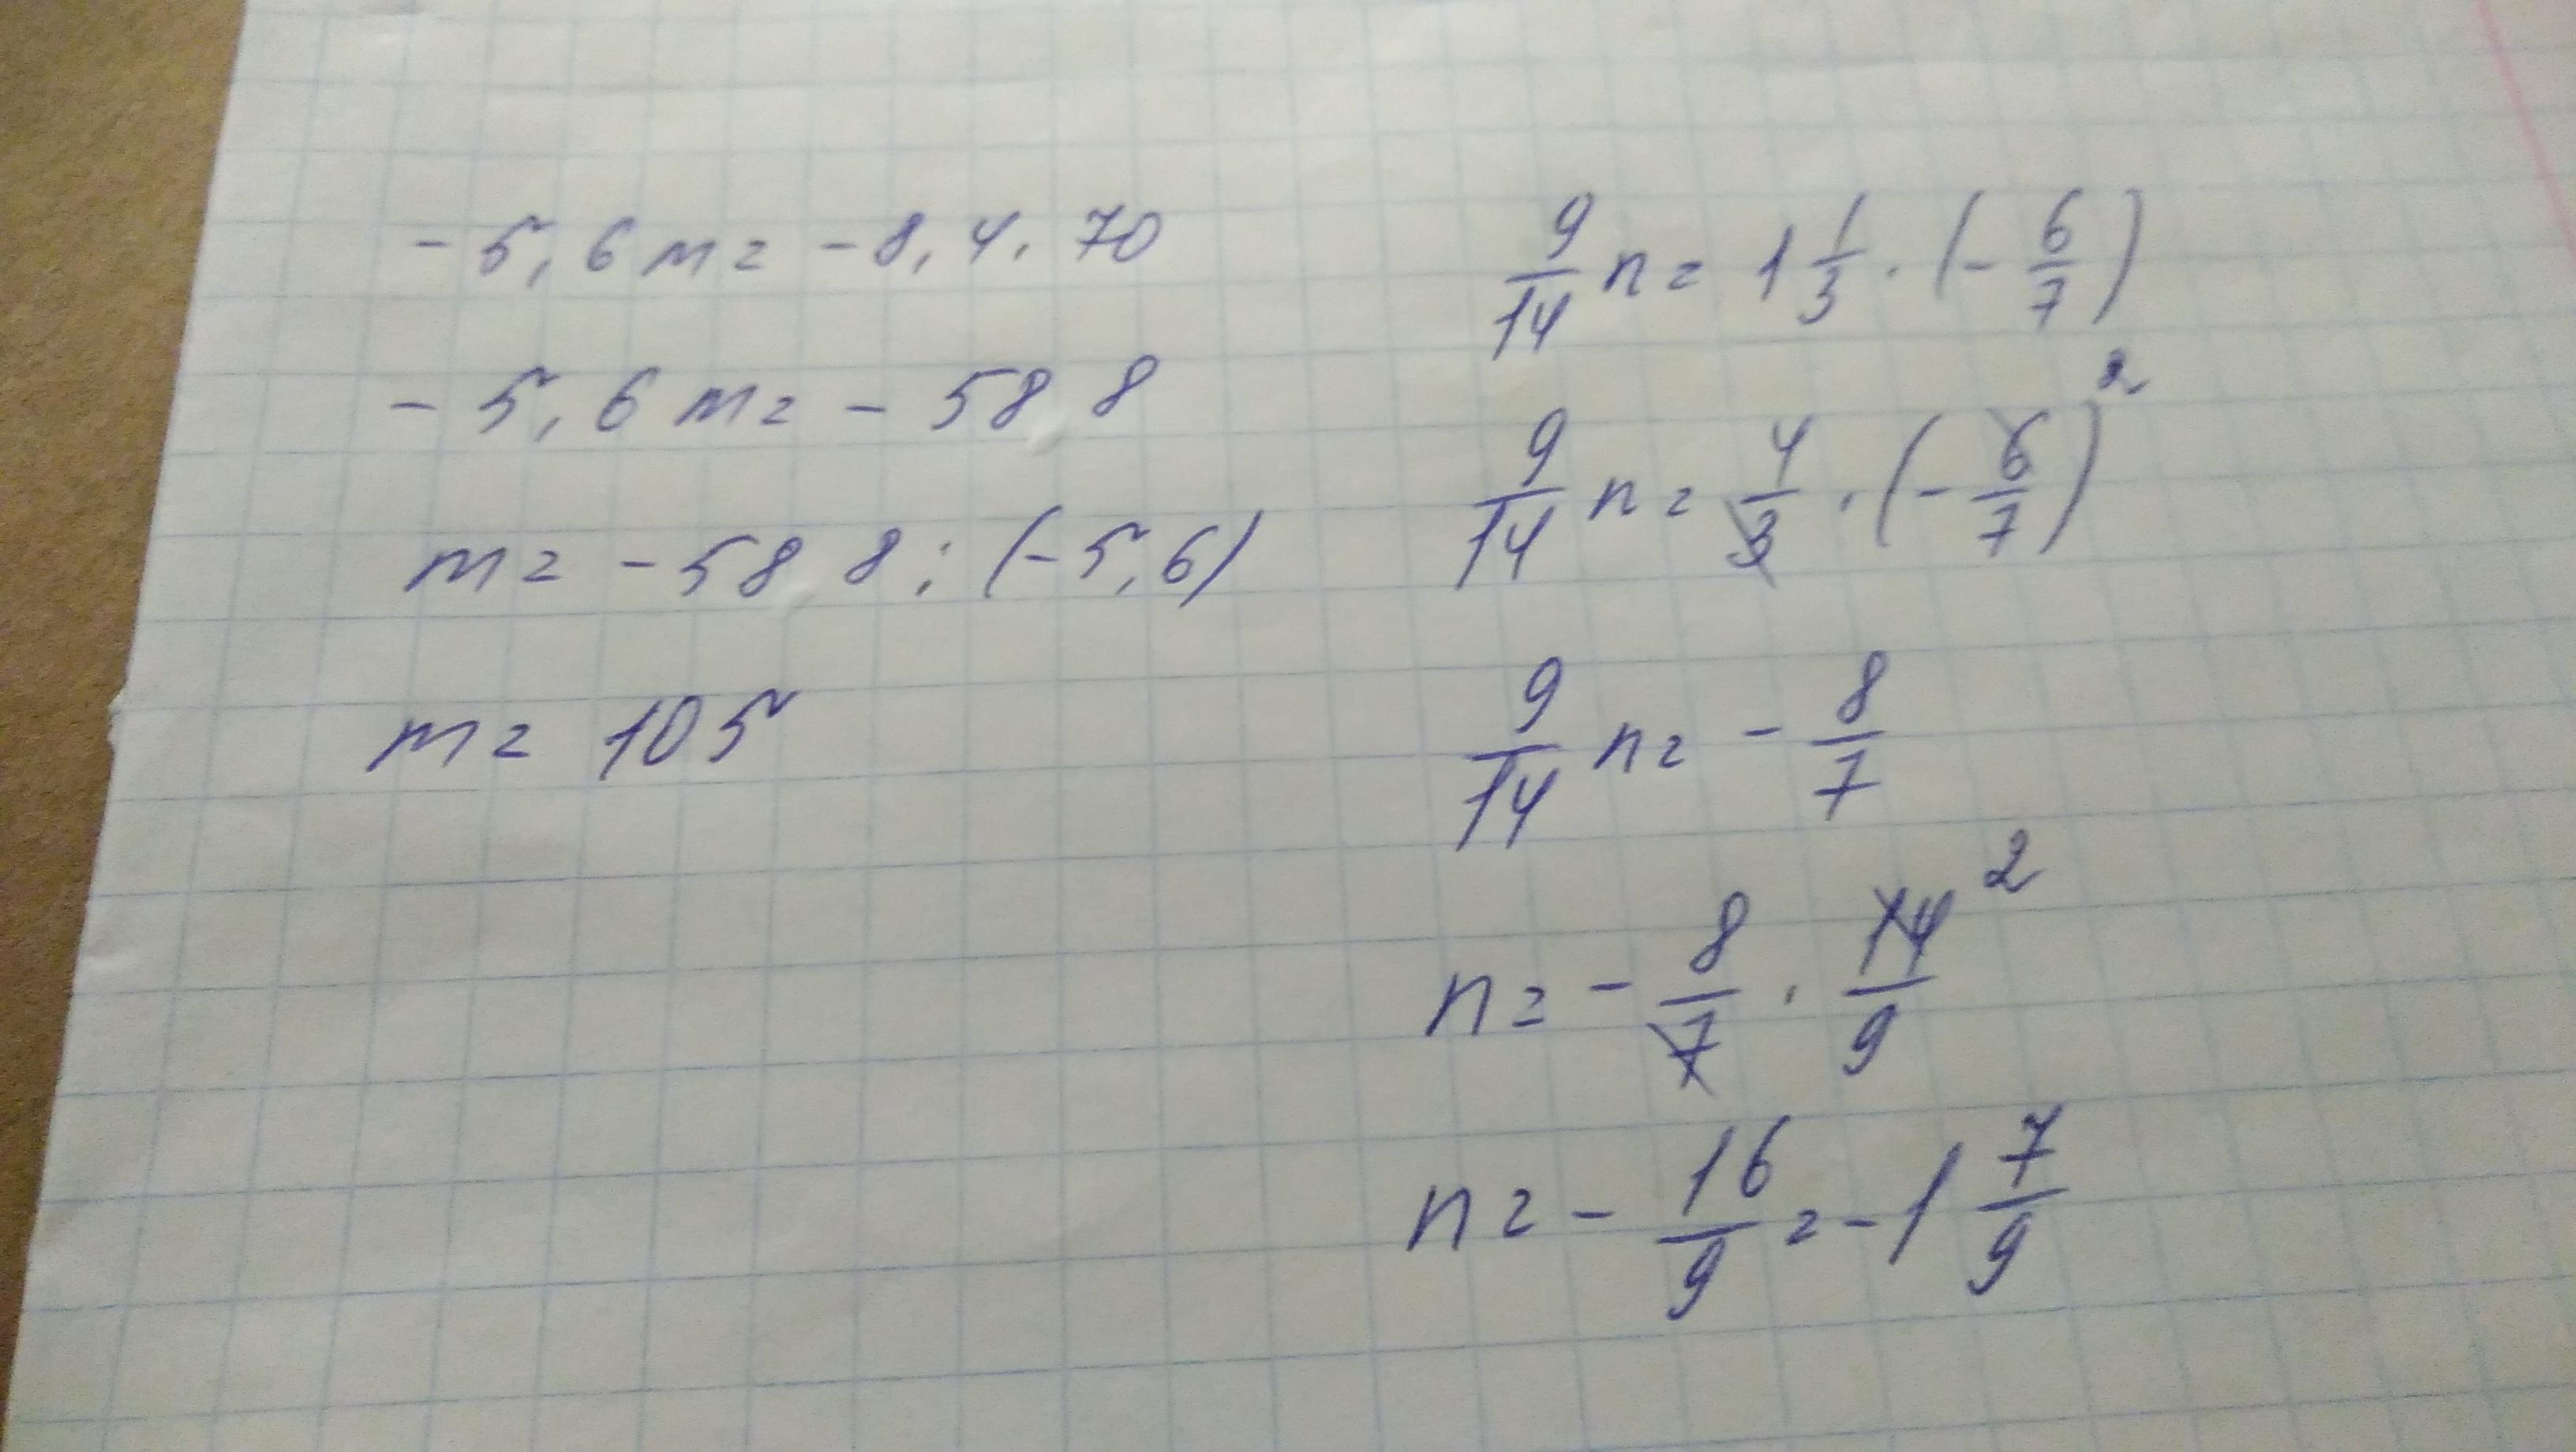 -5,6m=-8,4·70
-5,6m=-58 8
m=-58 8:(-5,6)
m=105
9/14 n=1 1/3·(-6/7)
9/14 n=4/3·(-6/7)²
9/14 n=-8/7
n=-8/7·14/9 2
n=-16/9=-1 7/9